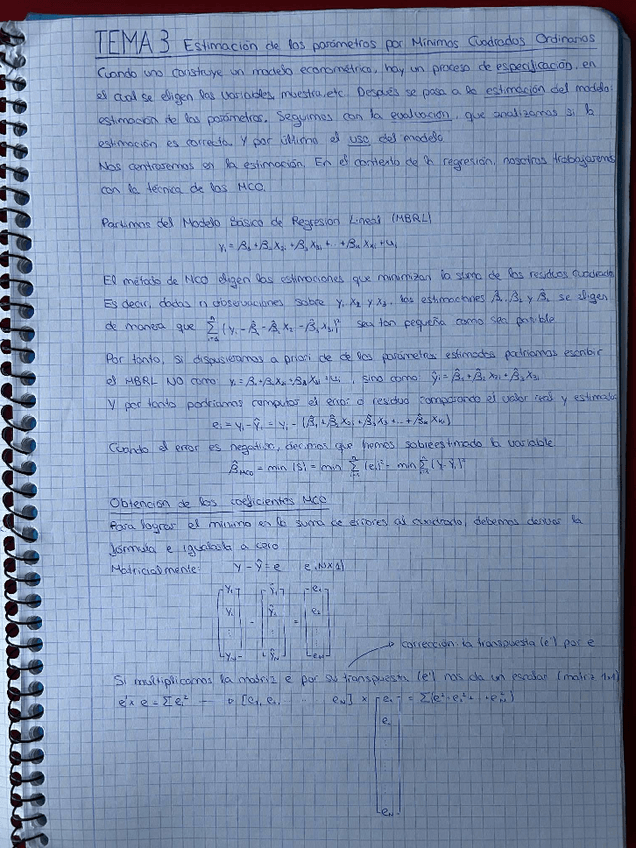 TEMA 3 Estimación de los parámetros por Mínimos Cuadrados Ordinarios
Cuando uno construye un modelo econométrico, hay un proceso de especificación, en
el cual se eligen las variables, muestra, etc. Después se pasa a la estimación del modelo:
estimación de los parámetros. Seguimos con la evaluación, que analizamos si la
estimación es correcta. Y por último, el uso del modelo
Nos centraremos en la estimación. En el contexto de la regresión, nosotros trabajaremos
con la técnica de los MCO.
Partimos del Modelo Básico de Regresión Lineal (MBRL)
El método de MCO eligen las estimaciones que minimizan la suma de los residuos cuadrado
Es decir, dadas n observaciones sobre y, x₂ y x₃, las estimaciones β̂₁, β̂₂ y β̂₃ se eligen
de manera que sea tan pequeña como sea posible
Por tanto, si dispusiéramos a priori de de los parámetros estimados podríamos escribir
el MBRL NO como , sino como ŷᵢ = β̂₁ + β̂₂ x₂ᵢ + β̂₃ x₃ᵢ
Y por tanto podríamos computar el error o residuo comparando el valor real y estimado
eᵢ = yᵢ - ŷᵢ = yᵢ - (β̂₁ + β̂₂ x₂ᵢ + β̂₃ x₃ᵢ + ... + β̂ₖ xₖᵢ)
Cuando el error es negativo, decimos que hemos sobreestimado la variable
Obtención de los coeficientes MCO
Para lograr el mínimo en la suma de errores al cuadrado, debemos derivar la
fórmula e igualarla a cero
Matricialmente: Y - Ŷ = e
corrección: la transpuesta (e') por e
Si multiplicamos la matriz e por su transpuesta (e') nos da un escalar (matriz 1x1)
e' x e = Σeᵢ²